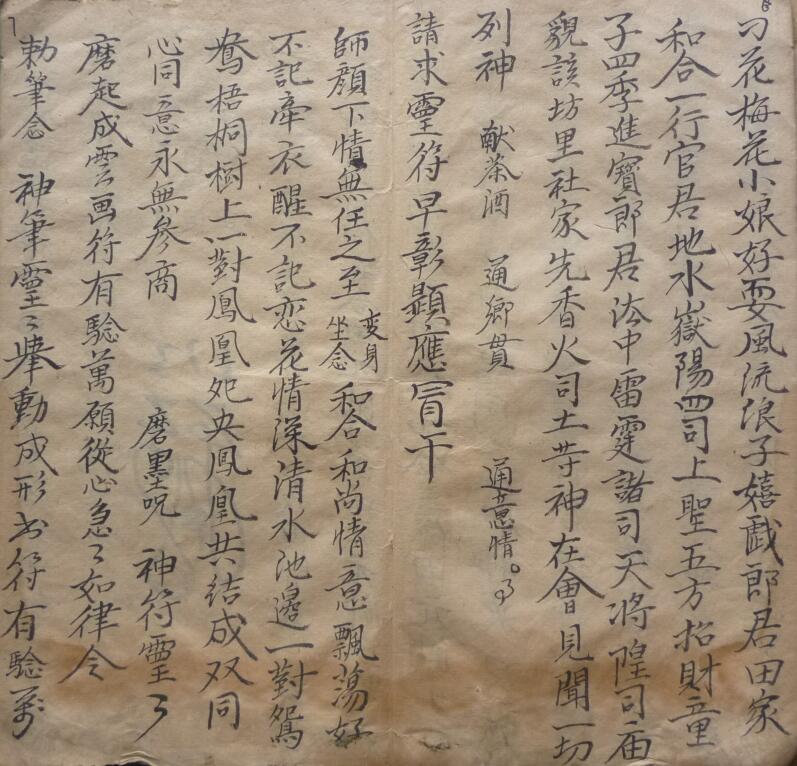 刁花梅花小娘好耍風流浪子嬉戯郎君田家
和合一行官君地水嶽陽四司上聖五方招財童
子四季進寶郎君法中雷霆諸司天将隍司庙
貌該坊里社家先香火司土等神在會見聞一切
列神 献茶酒 通鄉貫 通意情
請求靈符早彰顯應冐干
師顔下情無任之至 变身 坐念 和合和尚情意飄蕩好
不記牽衣醒不記恋花情深清水池邊一對鴛
鴦梧桐樹上一對鳳凰夗央鳳凰共结成双同
心同意永無参商 磨墨呪 神符靈々
磨起成雲画符有騐萬願從心急々如律令
勅筆念 神筆靈々举動成形书符有騐萬